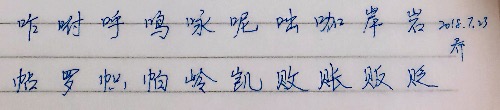 咋咐呼鸣咏呢咄咖岸岩 2018.7.23
帖罗帜帕岭凯败账贩贬